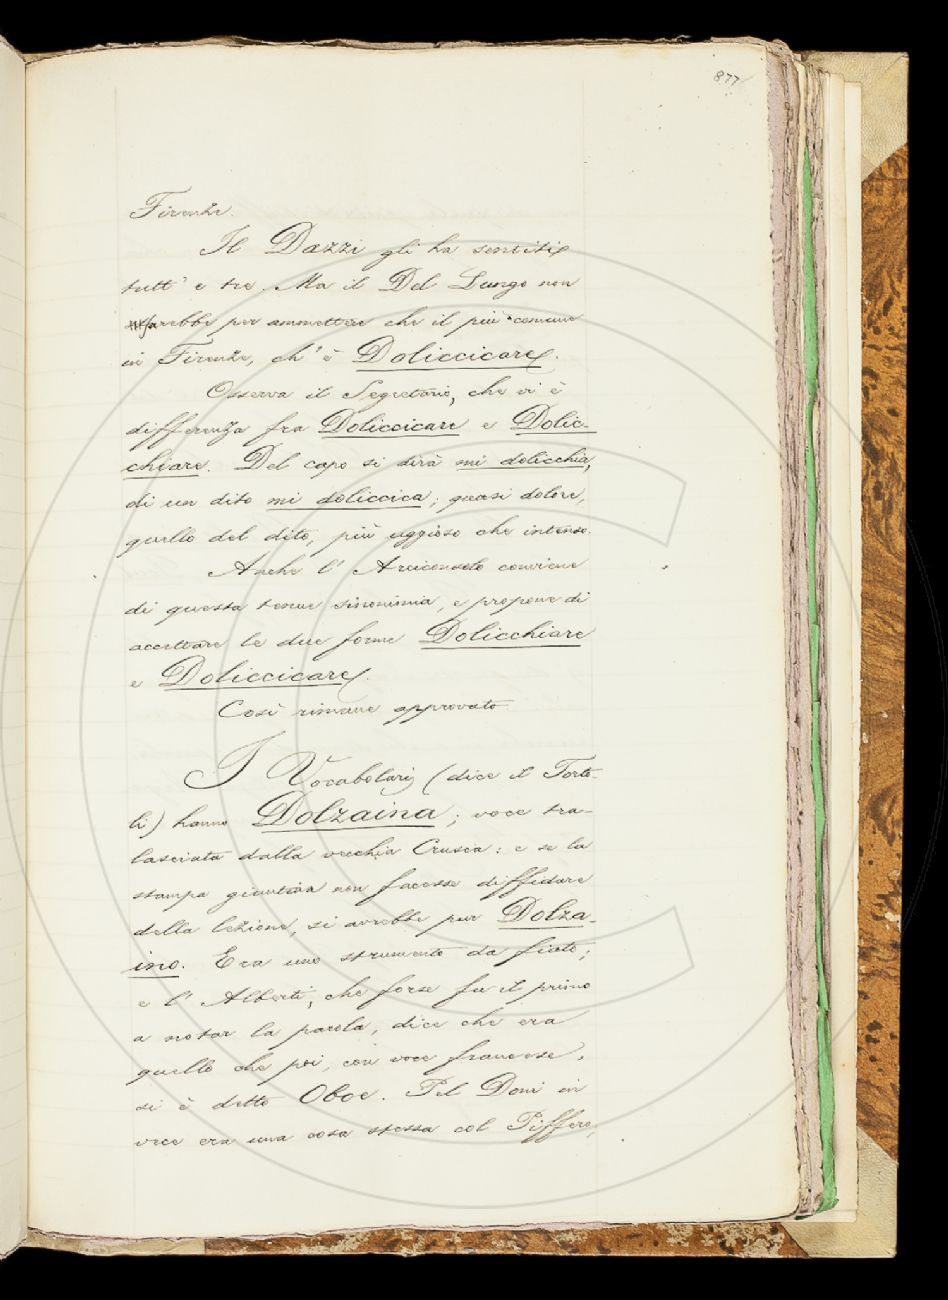 877
Firenze.
Il Dazzi gli ha sentiti
tutt' e tre. Ma il Del Lungo non
sarebbe per ammettere che il più comune
in Firenze, ch'è Doliccicare.
Osserva il Segretario, che vi è
differenza fra Doliccicare e Dolic-
chiare. Del capo si dirà mi dolicchia,
di un dito mi doliccica; quasi dolore,
quello del dito, più uggioso che intenso.
Anche l'Arciconsolo conviene
di questa tenue sinonimia, e propone di
accettare le due forme Dolicchiare
e Doliccicare.
Così rimane approvato.
I Vocabolarj (dice il Torto-
li) hanno Dolzaina; voce tra-
lasciata dalla vecchia Crusca: e se la
stampa giuntina non facesse diffidare
della lezione, si avrebbe pur Dolza-
ino. Era uno strumento da fiato;
e l'Alberti, che forse fu il primo
a notar la parola, dice che era
quello che poi, con voce francese,
si è detto Oboe. Pel Doni in
vece era una cosa stessa col Piffero,